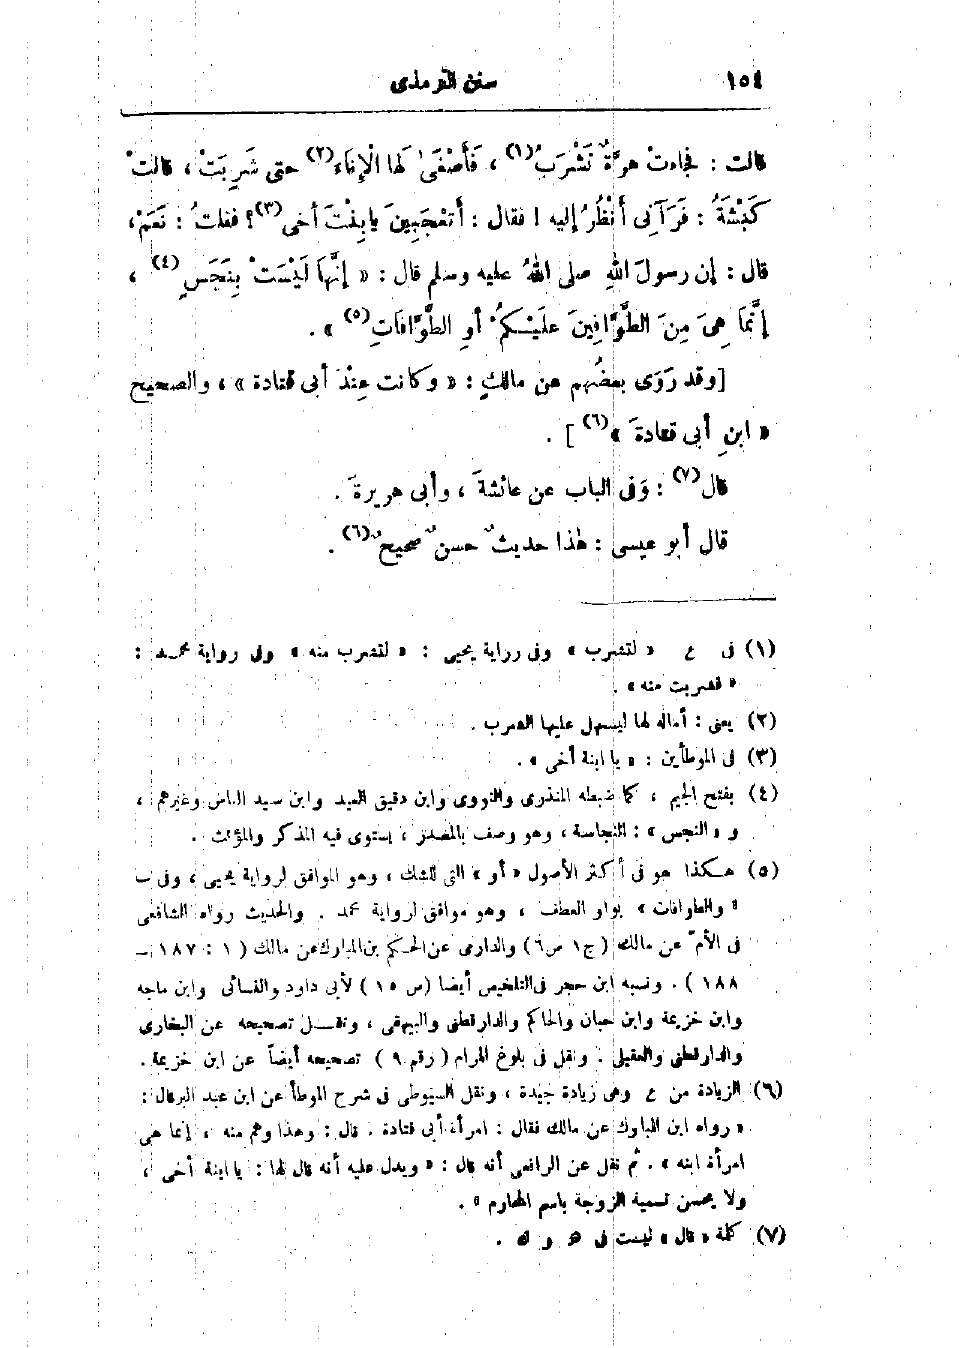 ١٥٤ سنن الترمذى
قالت : فجاءتْ هرَّةٌ تَشْرَبُ(١) ، فَأَصْغَىٰ لها الْإِنَاءَ(٢) حتى شَرِبَتْ ، قالتْ
كَبْشَةُ : فَرَآنِى أَنْظُرُ إليه ! فقال : أَتَعْجَبِينَ يا بِنْتَ أخى(٣)؟ فقلتُ : نَعَمْ ،
قال : إن رسولَ اللهِ صلى اللهُ عليه وسلم قال : « إنَّهَا لَيْسَتْ بِنَجَسٍ(٤) ،
إنَّمَا هِىَ مِنَ الطَّوَّافِينَ عَلَيْكُمْ أوِ الطَّوَّافَاتِ(٥) » .
[وقد رَوَى بعضُهم عن مالكٍ : « وكانت عِنْدَ أبى قتادة » ، والصحيح
« ابنِ أبى قتادةَ »(٦) ] .
قال(٧) : وَفى الباب عن عائشةَ ، وأبى هريرةَ .
قال أبو عيسى : هٰذا حديثٌ حسنٌ صحيحٌ(٦) .
(١) فى ع « لتشرب » وفى رواية يحيى : « لتشرب منه » وفى رواية محمـد :
« فشربت منه » .
(٢) يعنى : أماله لها ليسهل عليها الشرب .
(٣) فى الموطأين : « يا ابنة أخى » .
(٤) بفتح الجيم ، كما ضبطه المنذرى والنووى وابن دقيق العيد وابن سيد الناس وغيرهم ،
و « النجس » : النجاسة ، وهو وصف بالمصدر ، يستوى فيه المذكر والمؤنث .
(٥) هـكذا هو فى أكثر الأصول « أو » التى للشك ، وهو الموافق لرواية يحيى ، وفى ب
« والطوافات » بواو العطف ، وهو موافق لرواية محمد . والحديث رواه الشافعى
فى الأمّ عن مالك ( ج١ ص٦ ) والدارمى عن الحكم بن المبارك عن مالك ( ١ : ١٨٧ ـ
١٨٨ ) . ونسبه ابن حجر فى التلخيص أيضا (ص ١٥ ) لأبى داود والنسائى وابن ماجه
وابن خزيمة وابن حبان والحاكم والدارقطنى والبيهقى ، ونقـل تصحيحه عن البخارى
والدارقطنى والعقيلى . ونقل فى بلوغ المرام ( رقم ٩ ) تصحيحه أيضاً عن ابن خزيمة .
(٦) الزيادة من ع وهى زيادة جيدة ، ونقل السيوطى فى شرح الموطأ عن ابن عبد البر قال :
« رواه ابن المبارك عن مالك فقال : امرأة أبى قتادة . قال : وهذا وهم منه ، إنما هى
امرأة ابنه » . ثم نقل عن الرافعى أنه قال : « ويدل عليه أنه قال لها : يا ابنة أخى ،
ولا يحسن تسمية الزوجة باسم المحارم » .
(٧) كلمة « قال » ليست فى ه و ك .